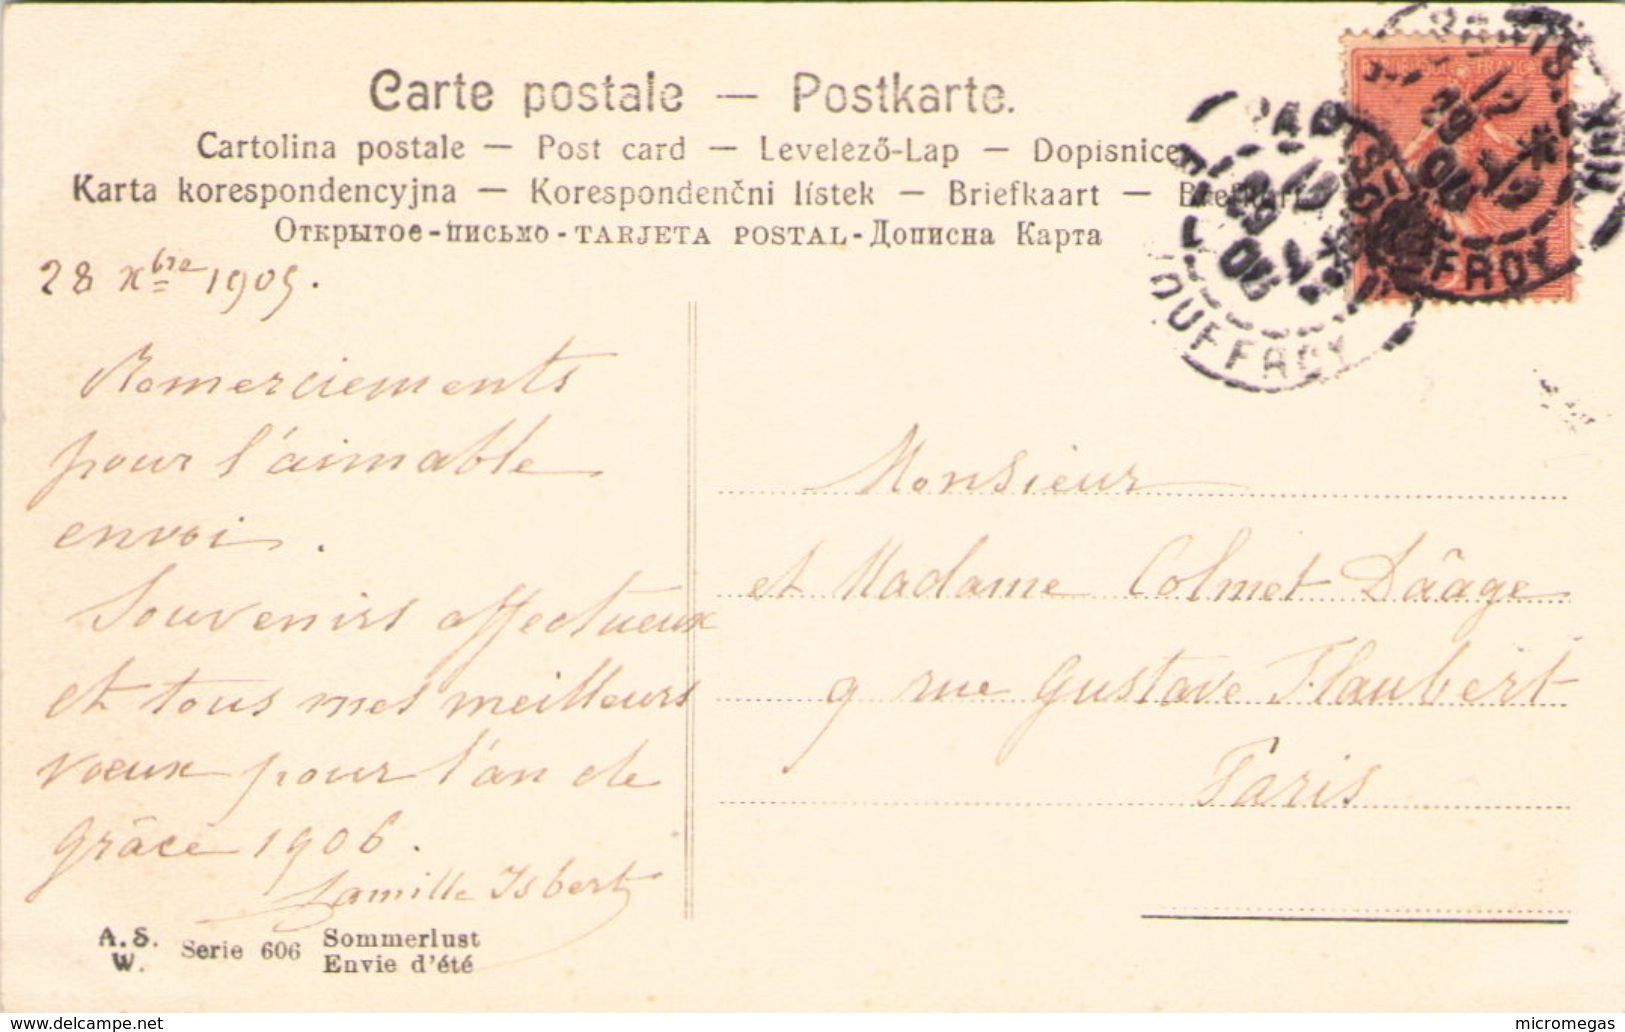 Carte postale — Postkarte.
Cartolina postale — Post card — Levelező-Lap — Dopisnice
Karta korespondencyjna — Korespondenční lístek — Briefkaart — Brefkort
Открытое-письмо - TARJETA POSTAL - Дописна Карта
28 Xbre 1905.
Remerciements
pour l'aimable
envoi.
Souvenirs affectueux
et tous mes meilleurs
vœux pour l'an de
grâce 1906.
Camille Isbert
Monsieur
et Madame Colmet Dâage
9 rue Gustave Flaubert
Paris
A. S. W. Serie 606 Sommerlust
Envie d'été
JOUFFROY
FROY
www.delcampe.net
micromegas